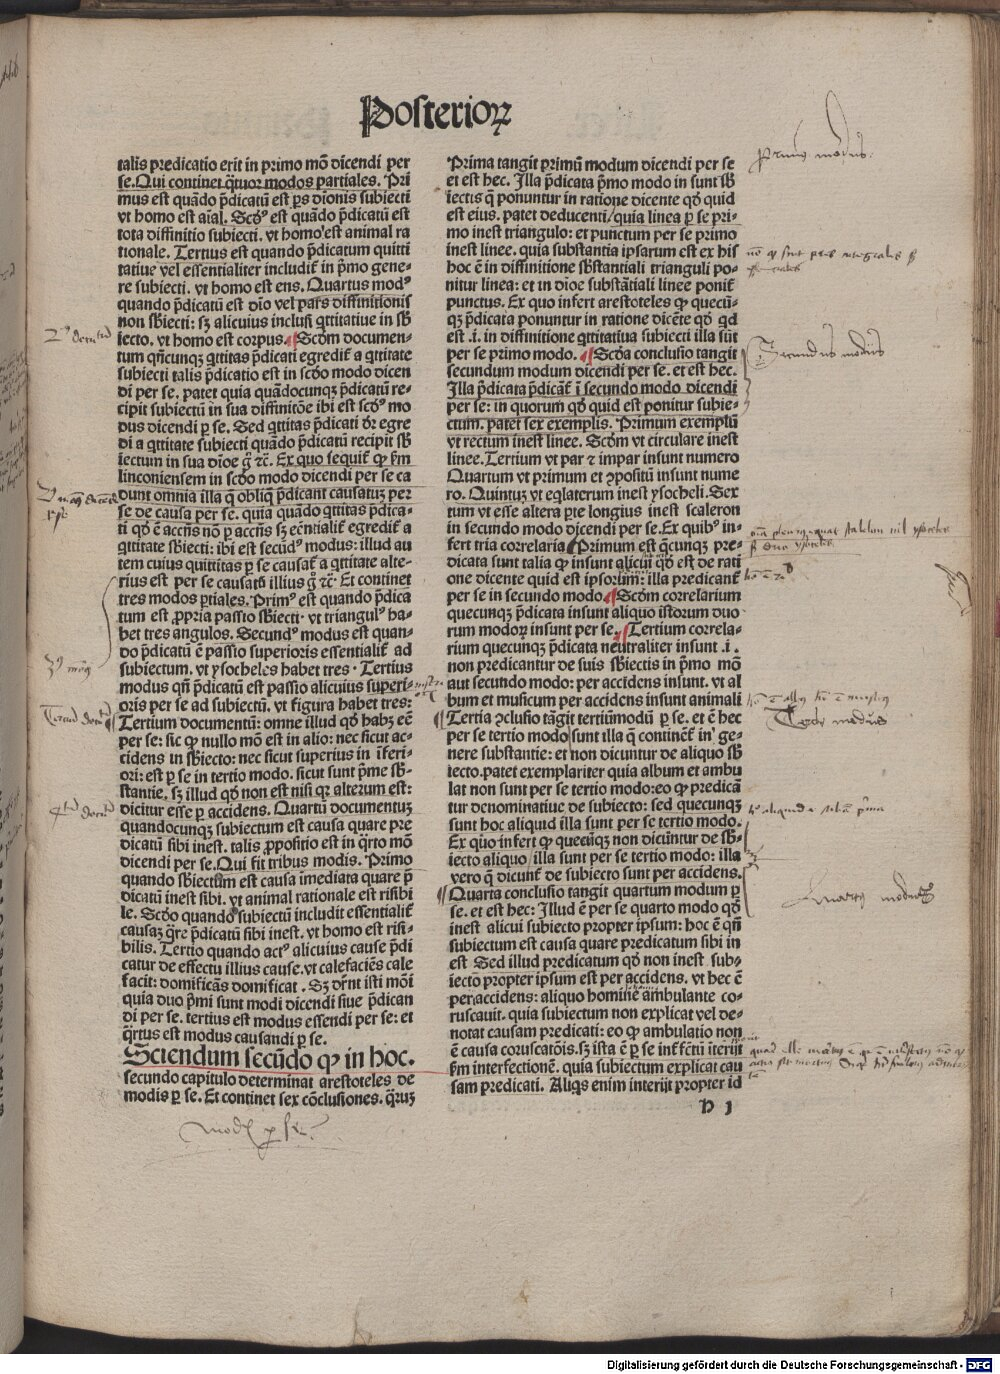 Posterioꝝ
talis predicatio erit in primo mō dicendi per
se. Qui continet q̄tuor modos partiales. Pri
mus est quādo p̄dicatū est ps dīonis subiecti
vt homo est aīal. Scdꝰ est quādo p̄dicatū est
tota diffinitio subiecti. vt homo est animal ra
tionale. Tertius est quando p̄dicatum quitti
tatiue vel essentialiter includit̄ in p̄mo gene⸗
re subiecti. vt homo est ens. Quartus modꝰ
quando p̄dicatū est dīo vel pars diffinitionis
non sb̄iecti: sꝫ alicuius inclusi q̄ttitatiue in sb̄
iecto. vt homo est corpus. ¶Scd̄m documen⸗
tum qn̄cunqꝫ q̄ttitas p̄dicati egredit̄ a q̄ttitate
subiecti talis p̄dicatio est in scd̄o modo dicen
di per se. patet quia quādocunqꝫ p̄dicatū re⸗
cipit subiectū in sua diffinitōe ibi est scd̄ꝰ mo
dus dicendi ꝑ se. Sed q̄ttitas p̄dicati dr̄ egre
di a q̄ttitate subiecti quādo p̄dicatū recipit sb̄
iectum in sua dīoe g̊ ⁊c̄. Ex quo sequit̄ ꝙ ẜm
linconiensem in scd̄o modo dicendi per se ca
dunt omnia illa q̄ obliq̄ p̄dicant causatuꝫ per
se de causa per se. quia quādo q̄ttitas p̄dica⸗
ti qd̄ ē accn̄s nō ꝑ accn̄s sꝫ eēntialit̄ egredit̄ a
q̄ttitate sb̄iecti: ibi est secūdꝰ modus: illud au
tem cuius quittitas ꝑ se causat̄ a q̄ttitate alte⸗
rius est per se causatō illius g̊ ⁊c̄. Et continet
tres modos ꝑtiales. Primꝰ est quando p̄dica
tum est ꝓpria passio sb̄iecti. vt triangulꝰ ha⸗
bet tres angulos. Secundꝰ modus est quan⸗
do p̄dicatū ē passio superioris essentialit̄ ad
subiectum. vt ysocheles habet tres. Tertius
modus qn̄ p̄dicatū est passio alicuius superi⸗
oris per se ad subiectū. vt figura habet tres:
¶Tertium documentū: omne illud qd̄ habꝫ eē
per se: sic ꝙ nullo mō est in alio: nec sicut ac⸗
cidens in sb̄iecto: nec sicut superius in īferi⸗
ori: est ꝑ se in tertio modo. sicut sunt p̄me sb̄⸗
stantie. sꝫ illud qd̄ non est nisi qꝛ alterum est:
dicitur esse ꝑ accidens. Quartū documentuꝫ
quandocunqꝫ subiectum est causa quare pre
dicatū sibi inest. talis ꝓpositio est in q̄rto mō
dicendi per se. Qui fit tribus modis. Primo
quando sb̄iectum est causa īmediata quare p̄
dicatū inest sibi. vt animal rationale est risibi
le. Scd̄o quando subiectū includit essentialit̄
causaꝫ q̄re p̄dicatū sibi inest. vt homo est risi⸗
bilis. Tertio quando actꝰ alicuius cause p̄di
catur de effectu illius cause. vt calefaciēs cale
facit: domificās domificat. Sꝫ dr̄nt isti mōi
quia duo p̄mi sunt modi dicendi siue p̄dican
di per se. tertius est modus essendi per se: et
q̄rtus est modus causandi ꝑ se.
Sciendum secūdo ꝙ in hoc.
secundo capitulo determinat arestoteles de
modis ꝑ se. Et continet sex cōclusiones. q̄ruꝫ
Prima tangit primū modum dicendi per se
et est hec. Illa p̄dicata p̄mo modo in sunt sb̄
iectis q̄ ponuntur in ratione dicente qd̄ quid
est eius. patet deducenti/quia linea ꝑ se pri⸗
mo inest triangulo: et punctum per se primo
inest linee. quia substantia ipsarum est ex his
hoc ē in diffinitione sb̄stantiali trianguli po⸗
nitur linea: et in dioe substātiali linee ponit̄
punctus. Ex quo infert arestoteles ꝙ quecū⸗
qꝫ p̄dicata ponuntur in ratione dicēte qd̄ qd
est .i. in diffinitione q̄ttitatiua subiecti illa sūt
per se primo modo. ¶Scd̄a conclusio tangit
secundum modum dicendi per se. et est hec.
Illa p̄dicata p̄dicāt̄ ī secundo modo dicendi
per se: in quorum qd̄ quid est ponitur subie⸗
ctum. patet sex exemplis. Primum exemplū
vt rectum inest linee. Scd̄m vt circulare inest
linee. Tertium vt par ⁊ impar insunt numero
Quartum vt primum et ꝯpositū insunt nume
ro. Quintuꝫ vt eqlaterum inest ysocheli. Sex
tum vt esse altera ꝑte longius inest scaleron
in secundo modo dicendi per se. Ex quibꝰ in⸗
fert tria correlaria ¶Primum est q̄cunqꝫ pre⸗
dicata sunt talia ꝙ insunt alicui qd̄ est de rati
one dicente quid est ipsorum: illa predicant̄
per se in secundo modo. ¶Scd̄m correlarium
quecunqꝫ p̄dicata insunt aliquo istorum duo
rum modoꝝ insunt per se. ¶Tertium correla⸗
rium quecunqꝫ p̄dicata neutraliter insunt .i.
non predicantur de suis sb̄iectis in p̄mo mō
aut secundo modo: per accidens insunt. vt al
bum et musicum per accidens insunt animali
¶Tertia ꝯclusio tāgit tertiū modū ꝑ se. et ē hec
per se tertio modo sunt illa q̄ continēt̄ in ge⸗
nere substantie: et non dicuntur de aliquo sb̄
iecto. patet exemplariter quia album et ambu
lat non sunt per se tertio modo: eo ꝙ predicā
tur denominatiue de subiecto: sed quecunqꝫ
sunt hoc aliquid illa sunt per se tertio modo.
Ex quo infert ꝙ quecūqꝫ non dicuntur de sb̄⸗
iecto aliquo/illa sunt per se tertio modo: illa
vero q̄ dicunt̄ de subiecto sunt per accidens.
¶Quarta conclusio tangit quartum modum ꝑ
se. et est hec: Illud ē per se quarto modo qd̄
inest alicui subiecto propter ipsum: hoc ē qn̄
subiectum est causa quare predicatum sibi in
est Sed illud predicatum qd̄ non inest sub⸗
iecto propter ipsum est per accidens. vt hec ē
per accidens: aliquo homine ambulante co⸗
ruscauit. quia subiectum non explicat vel de⸗
notat causam predicati: eo ꝙ ambulatio non
ē causa coruscatōis. sꝫ ista ē ꝑ se int̄fectū iterijt
ẜm interfectionē. quia subiectum explicat cau
sam predicati. Aliqs enim interijt propter id
h 1
Primus modus:
Secundus modus
Tercius modus
Quartus modus
modi per se